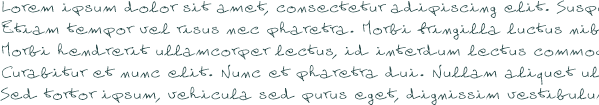 Lorem ipsum dolor sit amet, consectetur adipiscing elit. Susp
Etiam tempor vel risus nec pharetra. Morbi fringilla luctus nib
Morbi hendrerit ullamcorper lectus, id interdum lectus commod
Curabitur et nunc elit. Nunc et pharetra dui. Nullam aliquet ul
Sed tortor ipsum, vehicula sed purus eget, dignissim vestibulu